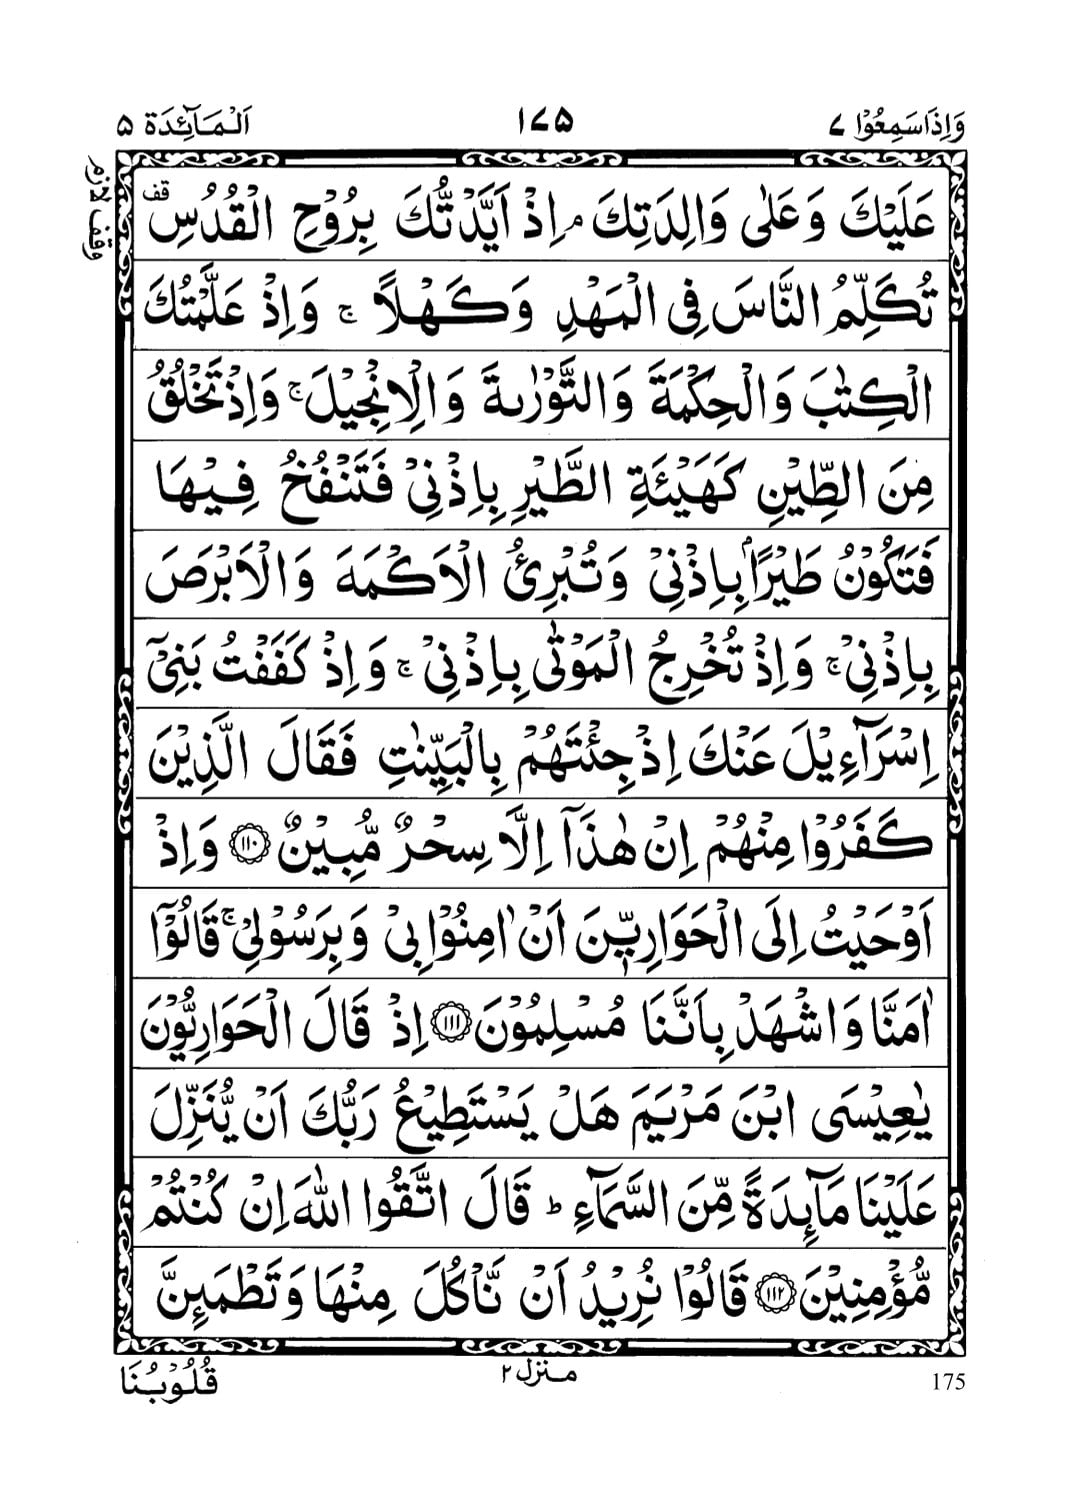 وَاِذَاسَمِعُوْا ۷
۱۷۵
اَلْمَآئِدَة ۵
وقف لازم
عَلَيْكَ وَعَلٰى وَالِدَتِكَ ۘ اِذْ اَيَّدْتُّكَ بِرُوْحِ الْقُدُسِ قف
تُكَلِّمُ النَّاسَ فِى الْمَهْدِ وَكَهْلًا ۚ وَاِذْ عَلَّمْتُكَ
الْكِتٰبَ وَالْحِكْمَةَ وَالتَّوْرٰىةَ وَالْاِنْجِيْلَ ۚ وَاِذْ تَخْلُقُ
مِنَ الطِّيْنِ كَهَيْئَةِ الطَّيْرِ بِاِذْنِىْ فَتَنْفُخُ فِيْهَا
فَتَكُوْنُ طَيْرًاۢ بِاِذْنِىْ وَتُبْرِئُ الْاَكْمَهَ وَالْاَبْرَصَ
بِاِذْنِىْ ۚ وَاِذْ تُخْرِجُ الْمَوْتٰى بِاِذْنِىْ ۚ وَاِذْ كَفَفْتُ بَنِىْٓ
اِسْرَآءِيْلَ عَنْكَ اِذْ جِئْتَهُمْ بِالْبَيِّنٰتِ فَقَالَ الَّذِيْنَ
كَفَرُوْا مِنْهُمْ اِنْ هٰذَآ اِلَّا سِحْرٌ مُّبِيْنٌ ۱۱۰ وَاِذْ
اَوْحَيْتُ اِلَى الْحَوَارِيّٖنَ اَنْ اٰمِنُوْا بِىْ وَبِرَسُوْلِىْ ۚ قَالُوْٓا
اٰمَنَّا وَاشْهَدْ بِاَنَّنَا مُسْلِمُوْنَ ۱۱۱ اِذْ قَالَ الْحَوَارِيُّوْنَ
يٰعِيْسَى ابْنَ مَرْيَمَ هَلْ يَسْتَطِيْعُ رَبُّكَ اَنْ يُّنَزِّلَ
عَلَيْنَا مَآىِٕدَةً مِّنَ السَّمَآءِ ؕ قَالَ اتَّقُوا اللّٰهَ اِنْ كُنْتُمْ
مُّؤْمِنِيْنَ ۱۱۲ قَالُوْا نُرِيْدُ اَنْ نَّاْكُلَ مِنْهَا وَتَطْمَىِٕنَّ
قُلُوْبُنَا
منزل ۲
175